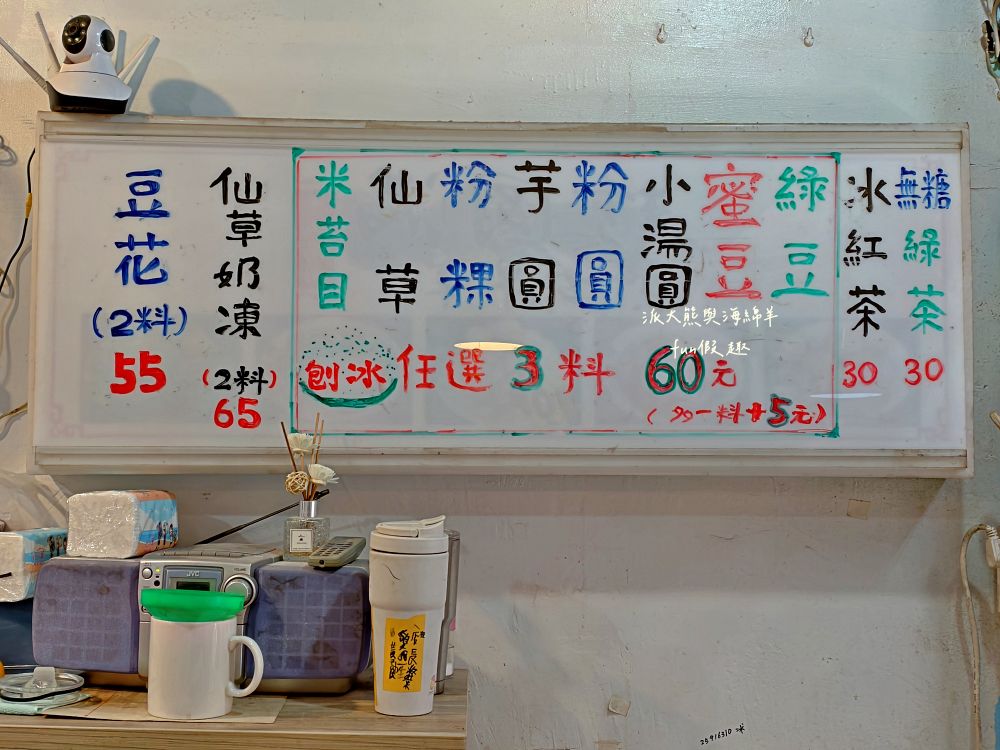 豆花
(2料)
55
仙草奶凍
(2料)
65
米苔目
仙草
粉粿
芋圓
粉圓
小湯圓
蜜豆
綠豆
刨冰 任選3料 60元
(多一料+5元)
冰紅茶
30
無糖綠茶
30
派大熊與海綿羊
fun假趣
JVC